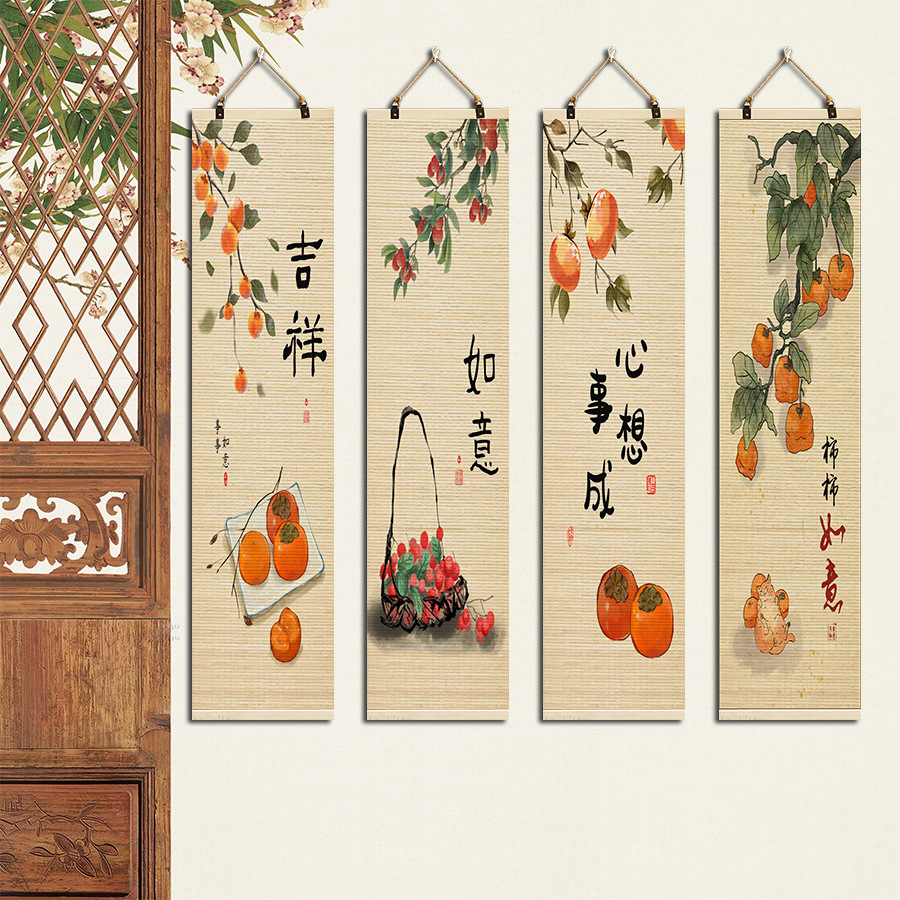 吉祥
事事
如意
如意
心想
事成
柿柿如意